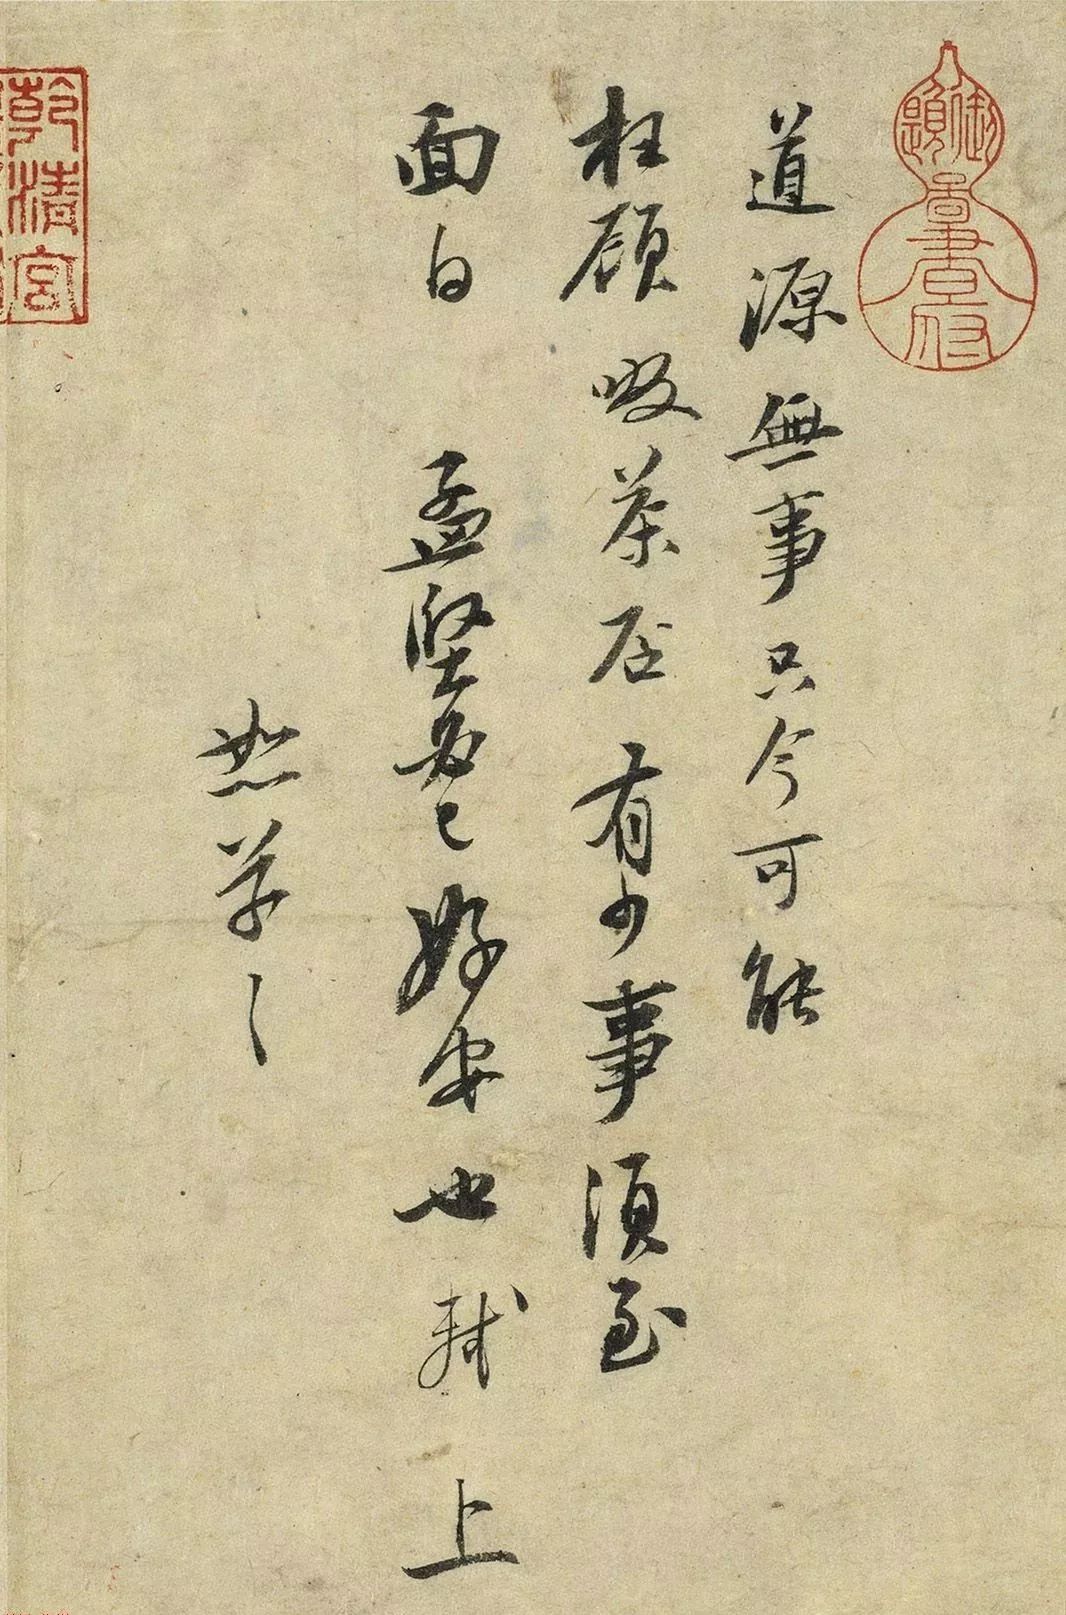 道源無事只今可能
枉顧啜茶否有少事須至
面白孟堅必已好安也軾上
恕草〻
乾清宮